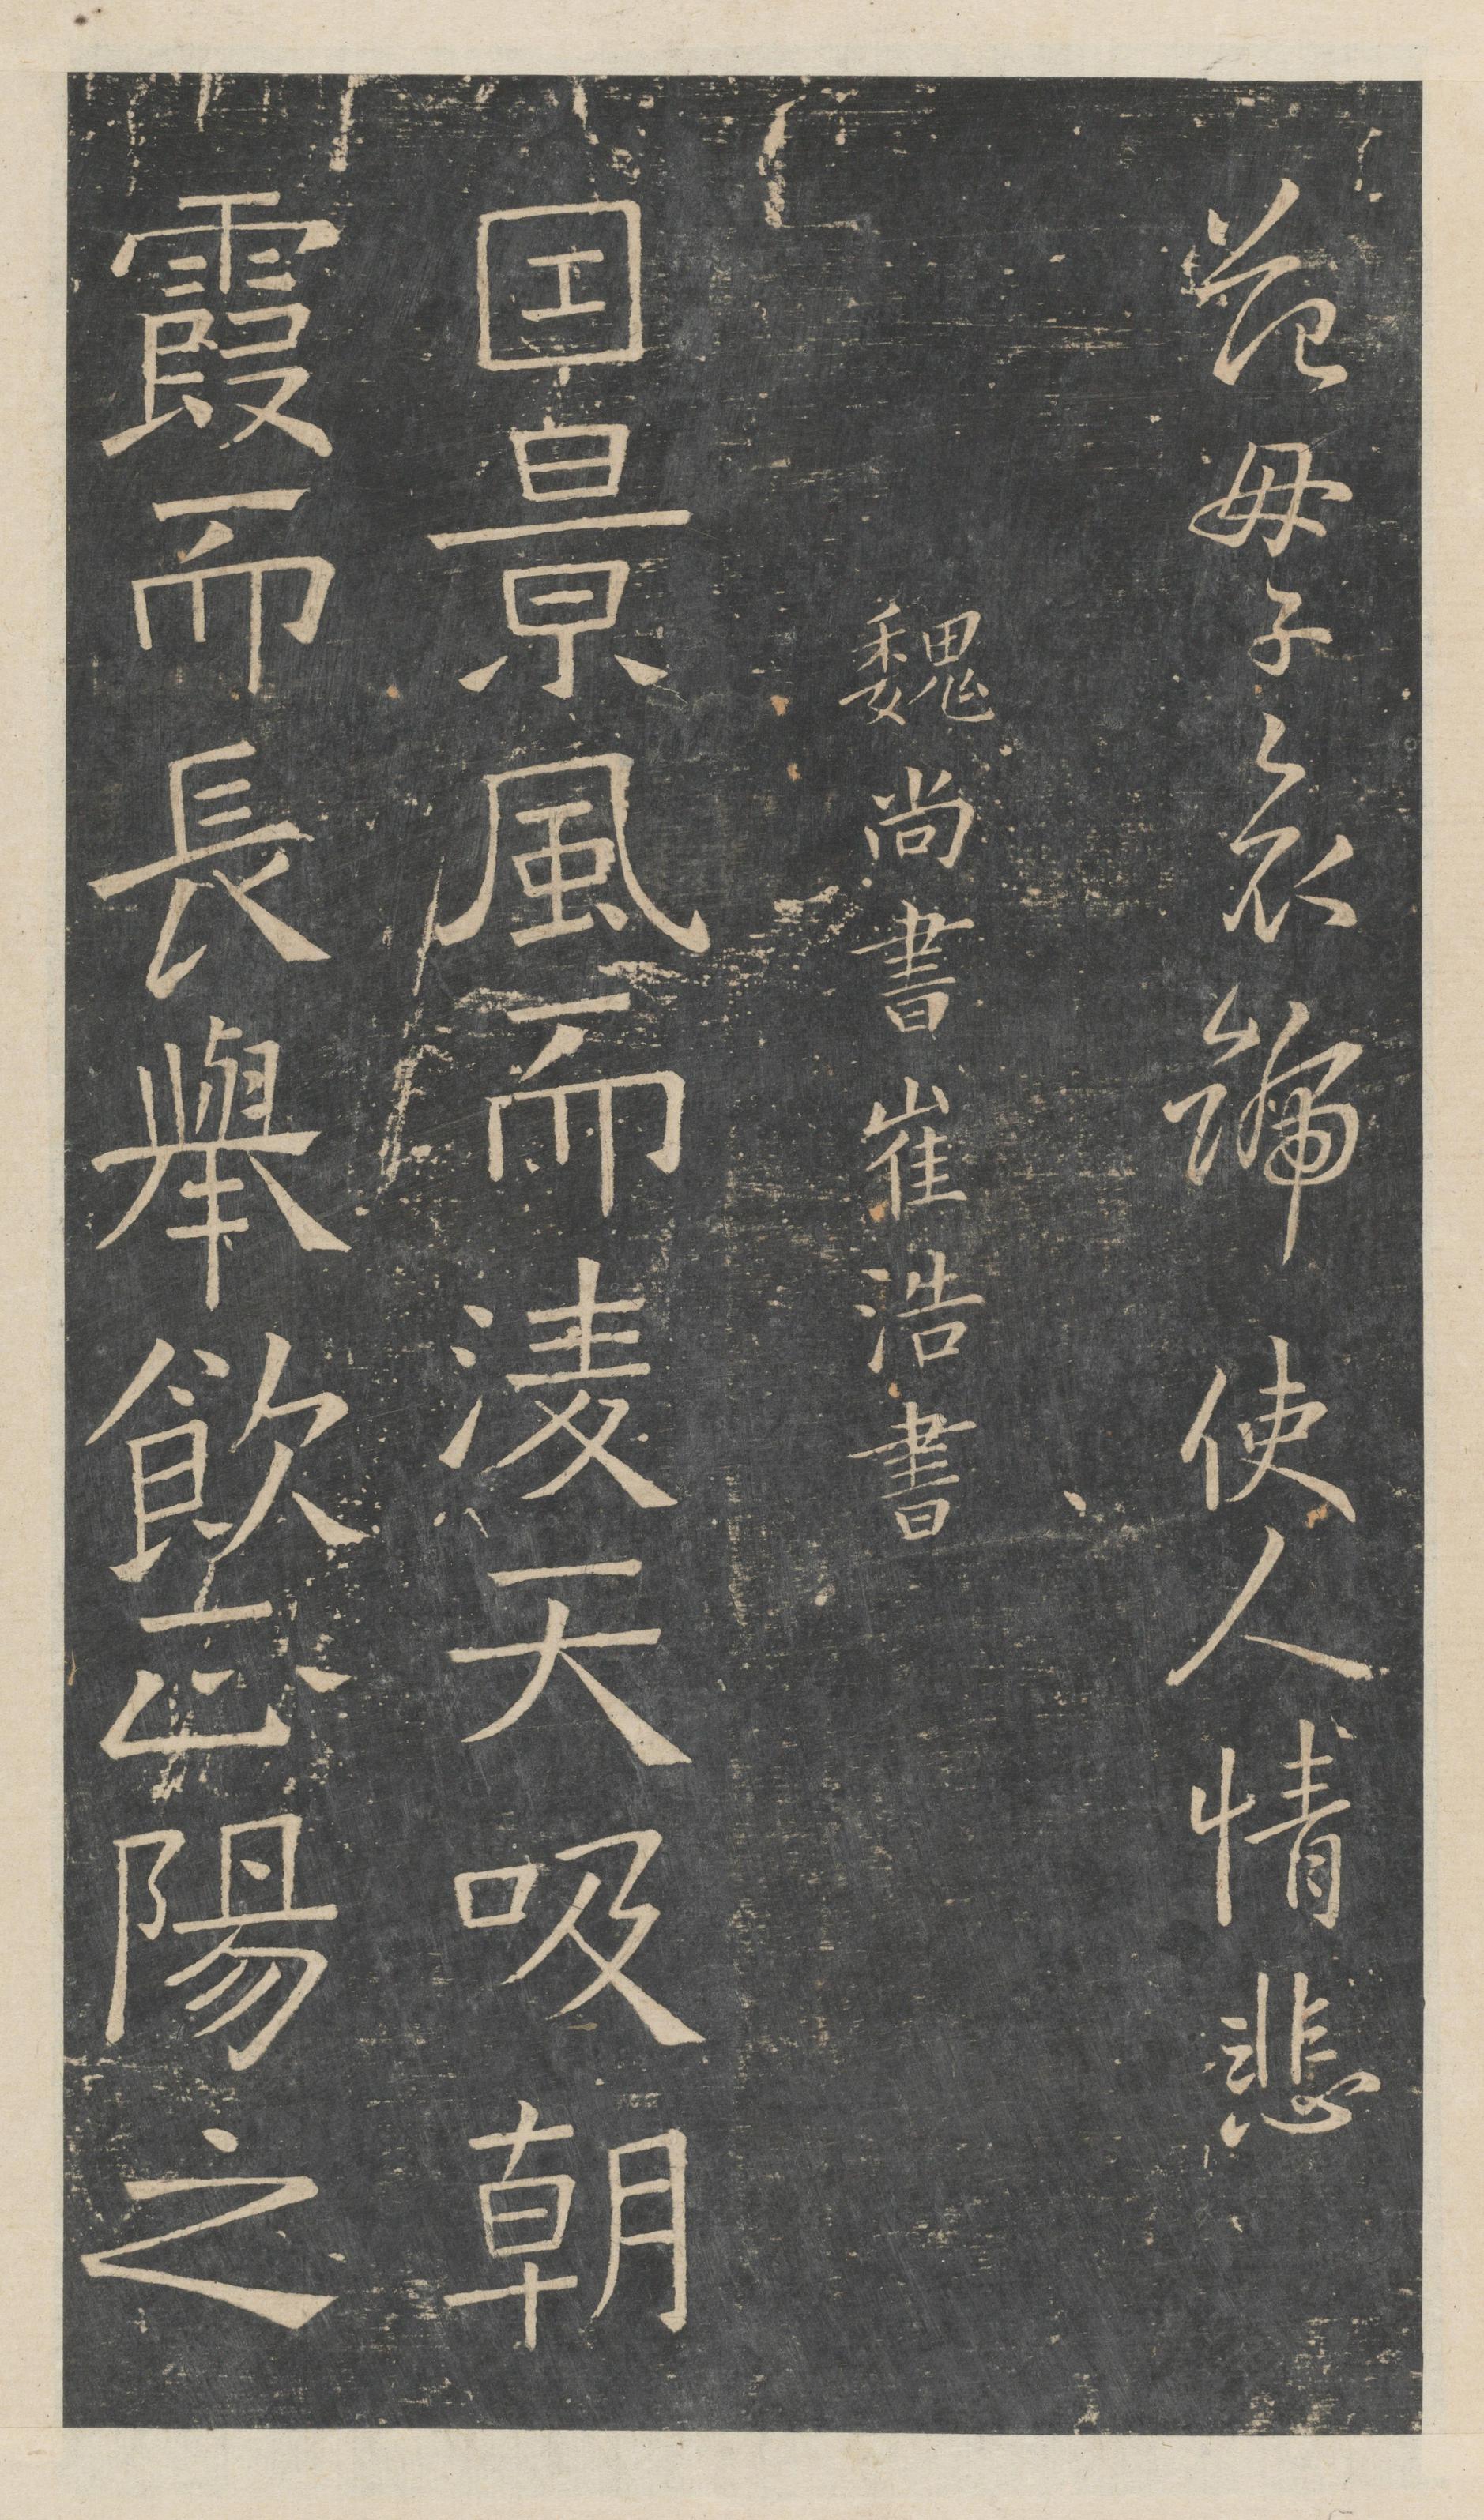 范母子哀號使人情悲
魏尚書崔浩書
囙景風而淩天吸朝
霞而長舉飲正陽之